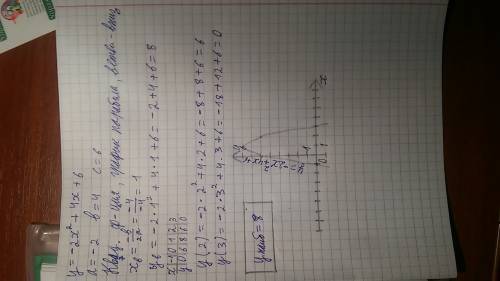 y = -2x² + 4x + 6
a = -2 b = 4 c = 6
Квад. ф-ция, график парабола, ветви-вниз
x_в = -b/2a = -4/-4 = 1
y_в = -2·1² + 4·1 + 6 = -2 + 4 + 6 = 8
x|-1|0|1|2|3
y|0|6|8|6|0
y(2) = -2·2² + 4·2 + 6 = -8 + 8 + 6 = 6
y(3) = -2·3² + 4·3 + 6 = -18 + 12 + 6 = 0
y
y=-2x²+4x+6
1
0 1 x
y наиб = 8